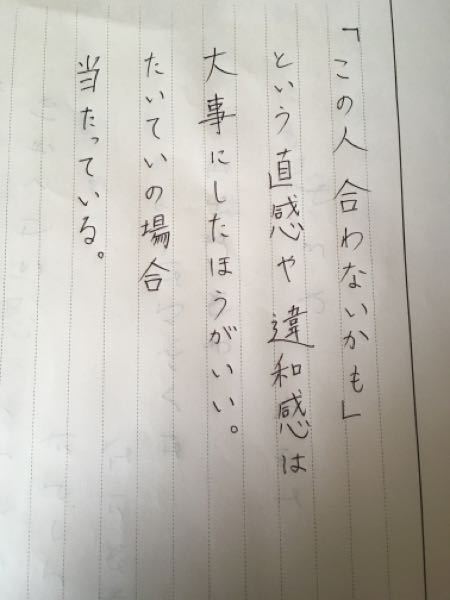 「この人 合わないかも」
という直感や違和感は
大事にしたほうがいい。
たいていの場合
当たっている。